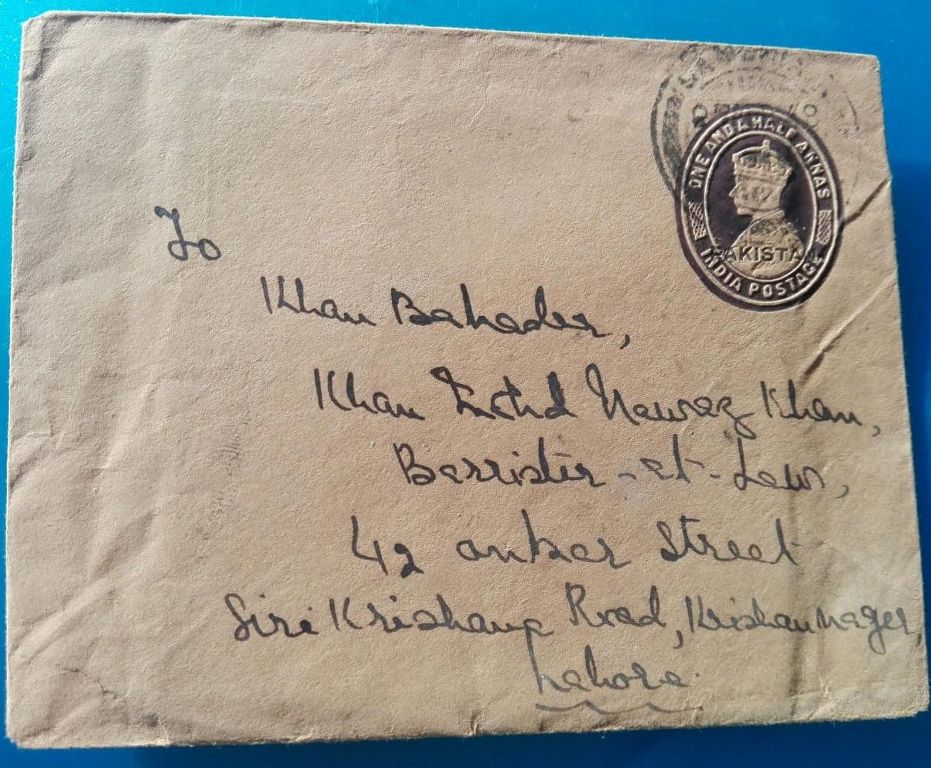 ONE AND A HALF ANNAS
PAKISTAN
INDIA POSTAGE
To
Khan Bahader,
Khan Nawaz Khan,
Barrister-at-Law,
42 onkar Street
Siri Krishana Road, Krishan nager,
Lahore.